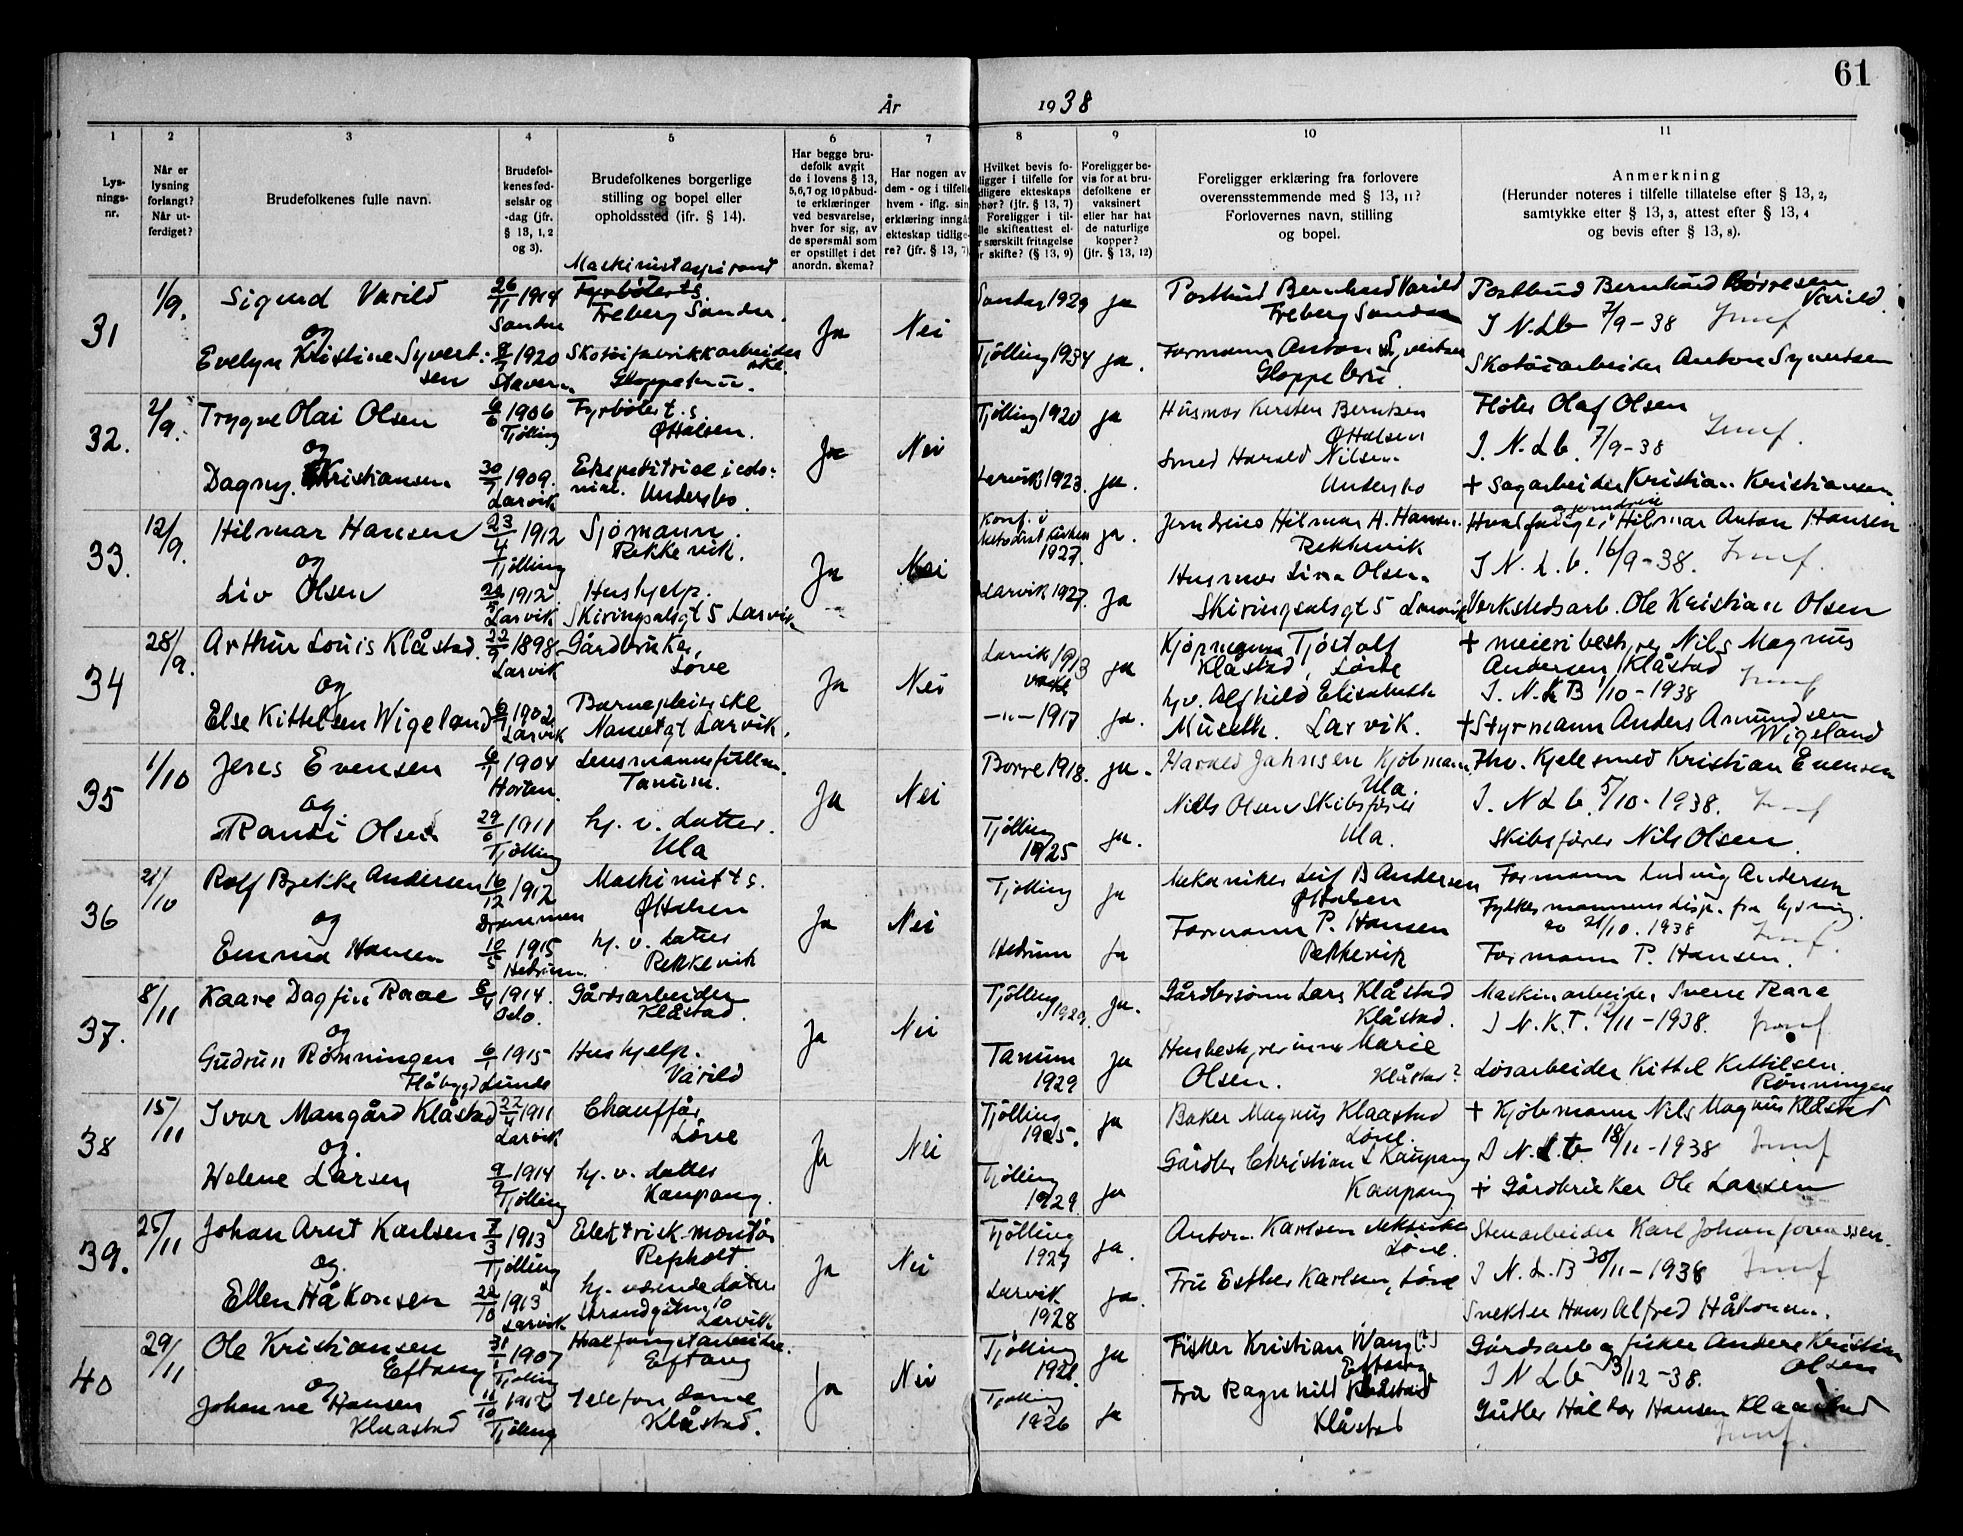 61
År 1938
1 2 3 4 5 6 7 8 9 10 11
Lys-
nings-
nr.
Når er
lysning
forlangt?
Når ut-
ferdiget?
Brudefolkenes fulle navn.
Brudefol-
kenes fød-
selsår og
-dag (jfr.
§ 13, 1, 2
og 3).
Brudefolkenes borgerlige
stilling og bopel eller
opholdssted (ifr. § 14).
Har begge bru-
defolk avgit
de i lovens § 13,
5,6,7 og 10 påbud-
te erklæringer
ved besvarelse,
hver for sig, av
de spørsmål som
er opstillet i det
anordn. skema?
Har nogen av
dem - og i tilfelle
hvem - iflg. sin
erklæring inngå
ekteskap tidlige-
re? (jfr. § 13, 7)
Hvilket bevis fo-
ligger i tilfelle for
dligere ekteskaps
phør? (jfr. § 13, 7)
Foreligger i til-
lle skifteattest el-
r særskilt fritagelse
r skifte? (§ 13, 9)
Foreligger be-
vis for at bru-
defolkene er
vaksinert
eller har hat
de naturlige
kopper?
(jfr. § 13, 12)
Foreligger erklæring fra forlovere
overensstemmende med § 13, 11?
Forlovernes navn, stilling
og bopel.
Anmerkning
(Herunder noteres i tilfelle tillatelse efter § 13, 2,
samtykke efter § 13, 3, attest efter § 13, 4
og bevis efter § 13, 8).
31
1/9.
Sigurd Varild
og
Evelyn Kristine Syvert-
sen
26/11 1914
1920
Stavern
Maskinistaspirant
Freberg Sandar.
Skotøifabrikkarbeider
ske.
Ja
Nei
1929 ja
Tjølling 1934 ja.
Postbud Bernhard Varild
Freberg Sandar
Formann Anton Syvertsen
Gloppebru
Postbud Bernhard Børresen
Varild.
I N.Lb 7/9-38
Skotøiarbeider Anton Syvertsen
32.
2/9.
Trygve Olai Olsen
og
Dagny Kristiansen
1906
Tjølling
30/7 1909.
Larvik
Fyrbøter t.s.
Ø Halsen.
Undersbo
Ja
Nei
Tjølling 1920 ja
Larvik 1923. ja.
Husmor Kirsten Berntsen
Ø Halsen
Smed Harald Nilsen
Undersbo
Fløter Olaf Olsen
I. N. Lb. 7/9-38
+ Sagarbeider Kristian Kristiansen
33.
12/9.
Hilmar Hansen
og
Liv Olsen
23/4 1912
Tjølling
1912
Larvik
Sjømann.
Rekkevik.
Hushjelp.
Skiringsalsgt 5 Larvik
Ja
Nei
Konf. i
Metodist kirken
1927. ja.
Larvik 1927. ja
Hilmar A. Hansen.
Rekkevik
Husmor Lina Olsen
Skiringsalsgt 5 Larvik
Hvalfanger Hilmar Anton Hansen
I N. L. b. 16/9-38.
Verkstedsarb. Ole Kristian Olsen
34
28/9.
Arthur Louis Klåstad.
og
Else Kittelsen Wigeland
22/9 1898
Larvik
1902
Larvik
Gårdbruker,
Løve
Barnepleierske
Nansetgt Larvik.
Ja
Nei
Larvik 1913 ja
-"- 1917 ja.
Kjøpmann Tjøstolf
Klåstad, Løve
hv. Alfhild Elisabeth
Museth. Larvik.
+ meieribestyrer Nils Magnus
Andersen Klåstad
I. N. L B 1/10-1938
+ Styrmann Anders Amundsen
Wigeland
35
1/10
Jens Evensen
og
Randi Olsen
6/1 1904
Horten.
29/6 1911
Tjølling
Lensmannsfullm.
Tanum.
hj. v. datter.
Ula
Ja
Nei
Borre 1918. ja.
Tjølling
1925 ja.
Harald Jahnsen Kjøbmann
Ula.
Nils Olsen Skibsfører
Ula.
Fhv. Kjelesmed Kristian Evensen
I. N L b. 5/10-1938.
Skibsfører Nils Olsen.
36
21/10
Rolf Bjekke Andersen
og
Emma Hansen
16/12 1912
Drammen
10/5 1915
Hedrum.
Maskinist t s.
Ø Halsen
hj. v. datter
Rekkevik
Ja
Nei
Tjølling ja
Hedrum ja
Mekaniker Leif B Andersen
Ø Halsen
Formann P. Hansen
Rekkevik
Formann Ludvig Andersen
Fylkesmannens disp. fra lysning.
av 21/10. 1938
Formann P. Hansen.
37.
8/11
Kaare Dagfin Raae
og
Gudrun Rønningen
Flåbygd Lunde
8/4 1914.
Oslo.
6/1 1915
Gårdsarbeider
Klåstad.
Hushjelp.
Varild
Ja
Nei
Tjølling
1929. ja.
Tanum
1929 ja
Lars Klåstad
Klåstad.
Husbestyrerinne Marie
Olsen. Klåstad?
Maskinarbeider Sverre Raae
I N. K. T. 12/11-1938.
Løsarbeider Kittel Kittilsen
Rønningen
38
15/11
Ivar Mangård Klåstad
og.
Helene Larsen
22/4 1911
Larvik
9/9 1914
Tjølling
Chauffør,
Løve
hj. v. datter
Kaupang.
Ja
Nei
Tjølling
1925. ja
Tjølling
1929. ja
Baker Magnus Klaastad
Løve.
Gårdbr Christian L Kaupang
Kaupang
+ Kjøbmann Nils Magnus Klåstad
I N. L b 18/11-1938
+ Gårdbruker Ole Larsen
39.
25/11
Johan Arnt Karlsen
og.
Ellen Håkonsen
7/3 1913
Tjølling
22/10 1913
Larvik
Elektrisk montør
Refsholt.
hj. værende datter
Strandgaten 10
Larvik
Ja
Nei
Tjølling
1927 ja.
Larvik
1928 ja.
Anton Karlsen
Løve.
Fru Esther Karlsen, Løve
Stenarbeider Karl Johan
I N. L. B 30/11-1938
Snekker Hans Alfred Håkonsen.
40
29/11
Ole Kristiansen
Eftang
og
Johanne Hansen
Klaastad
31/1 1907
Tjølling
11/10 1912
Tjølling
Hvalfangstarbeider.
Eftang
Telefon dame
Klåstad.
Ja
Nei
Tjølling
1921. ja
Tjølling
1926 ja
Fisker Kristian Wang (?)
Eftang
Fru Ragnhild Klåstad
Klåstad
Gårdsarb og fisker Anders Kristian
Olsen
I N L b 3/12-38.
Gårdbr Halvor Hansen Klaastad